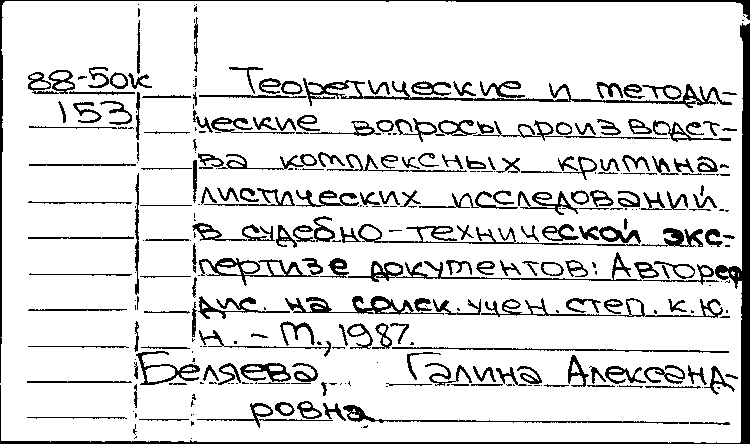 88-50к Теоретические и методи-
153 ческие вопросы производст-
ва комплексных кримина-
листических исследований
в судебно-технической экс-
пертизе документов: Автореф
дис. на соиск. учен. степ. к.ю.
н. - М., 1987.
Беляева, Галина Александ-
ровна.